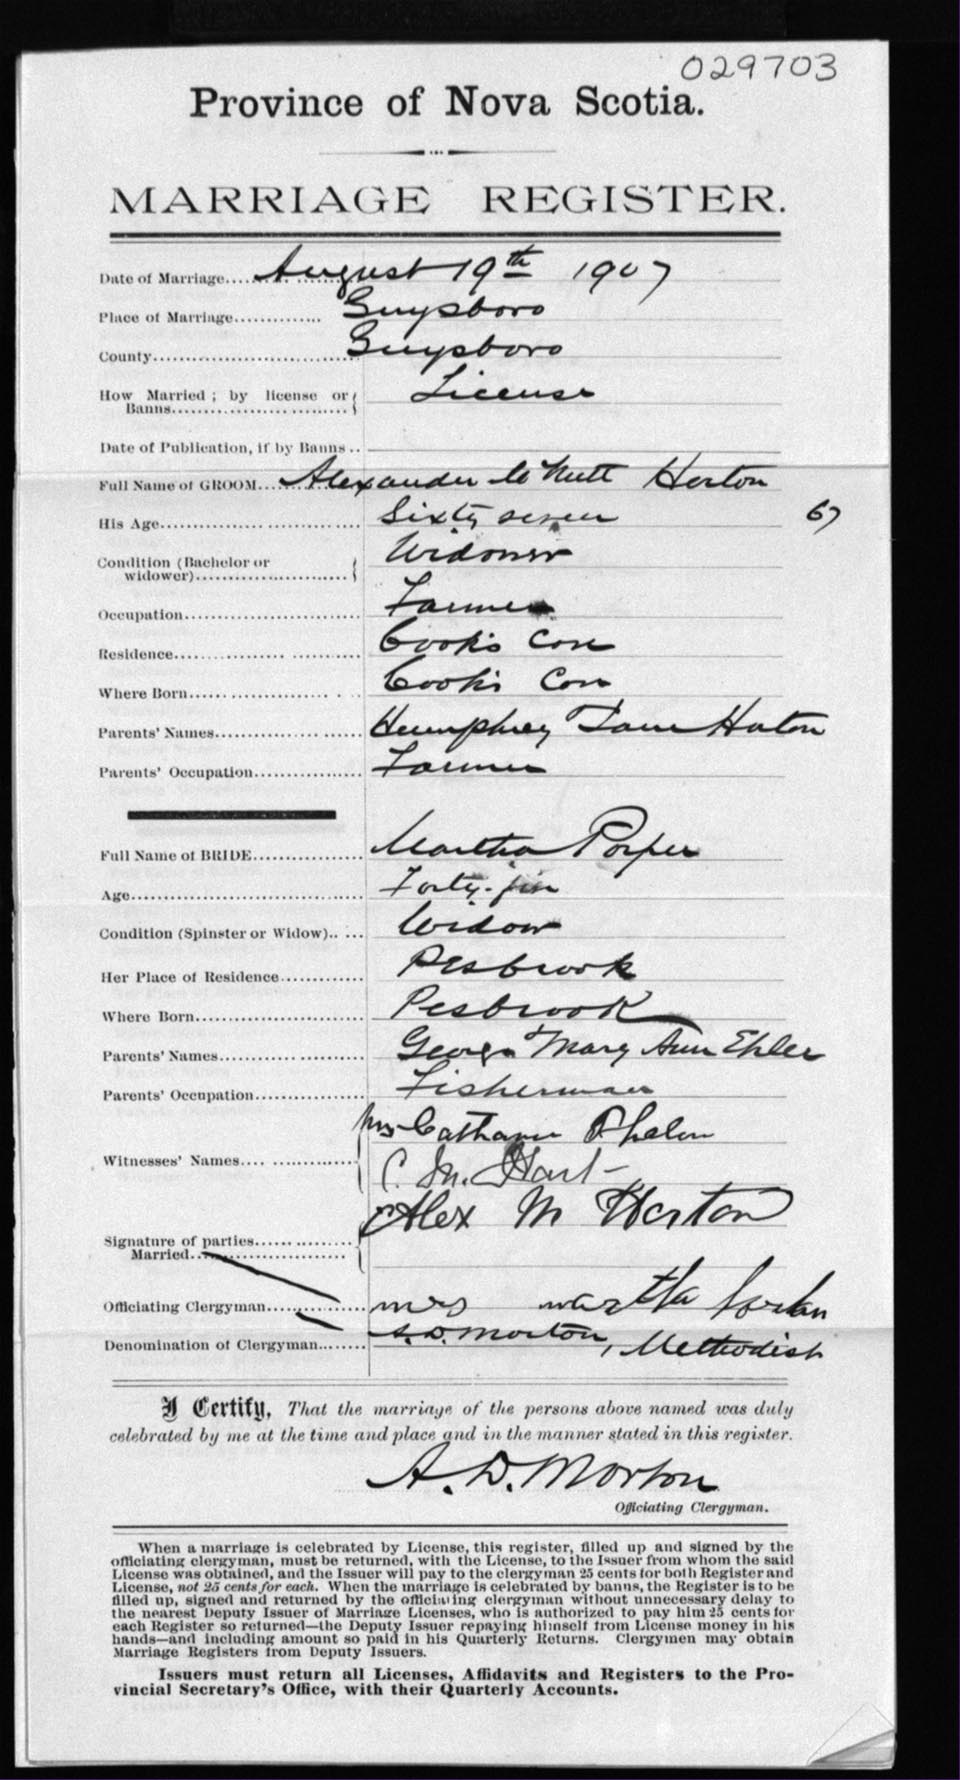 029703
Province of Nova Scotia.
MARRIAGE REGISTER.
Date of Marriage.... August 19th 1907
Place of Marriage............. Guysboro
County............................ Guysboro
How Married ; by license or
Banns........................ License
Date of Publication, if by Banns ..
Full Name of GROOM.... Alexander Horton
His Age............................ Sixty seven 67
Condition (Bachelor or
widower)........................ Widower
Occupation........................ Farmer
Residence........................ Cook's Cove
Where Born........................ Cook's Cove
Parents' Names........................ Humphrey Horton
Parents' Occupation.................. Farmer
Full Name of BRIDE.................. Martha
Age........................ Forty-
Condition (Spinster or Widow)..... Widow
Her Place of Residence............ Pesbrook
Where Born........................ Pesbrook
Parents' Names.................. George Mary Ann Ehler
Parents' Occupation............... Fisherman
Mrs Phelon
Witnesses' Names.... ............
C. M. Hart
Alex M Horton
Signature of parties...............
Married........................
Officiating Clergyman............ mrs martha
A. D. Morton, Methodist
Denomination of Clergyman.......
I Certify, That the marriage of the persons above named was duly
celebrated by me at the time and place and in the manner stated in this register.
A. D. Morton
Officiating Clergyman.
When a marriage is celebrated by License, this register, filled up and signed by the
officiating clergyman, must be returned, with the License, to the Issuer from whom the said
License was obtained, and the Issuer will pay to the clergyman 25 cents for both Register and
License, not 25 cents for each. When the marriage is celebrated by banns, the Register is to be
filled up, signed and returned by the officiating clergyman without unnecessary delay to
the nearest Deputy Issuer of Marriage Licenses, who is authorized to pay him 25 cents for
each Register so returned—the Deputy Issuer repaying himself from License money in his
hands—and including amount so paid in his Quarterly Returns. Clergymen may obtain
Marriage Registers from Deputy Issuers.
Issuers must return all Licenses, Affidavits and Registers to the Pro-
vincial Secretary's Office, with their Quarterly Accounts.